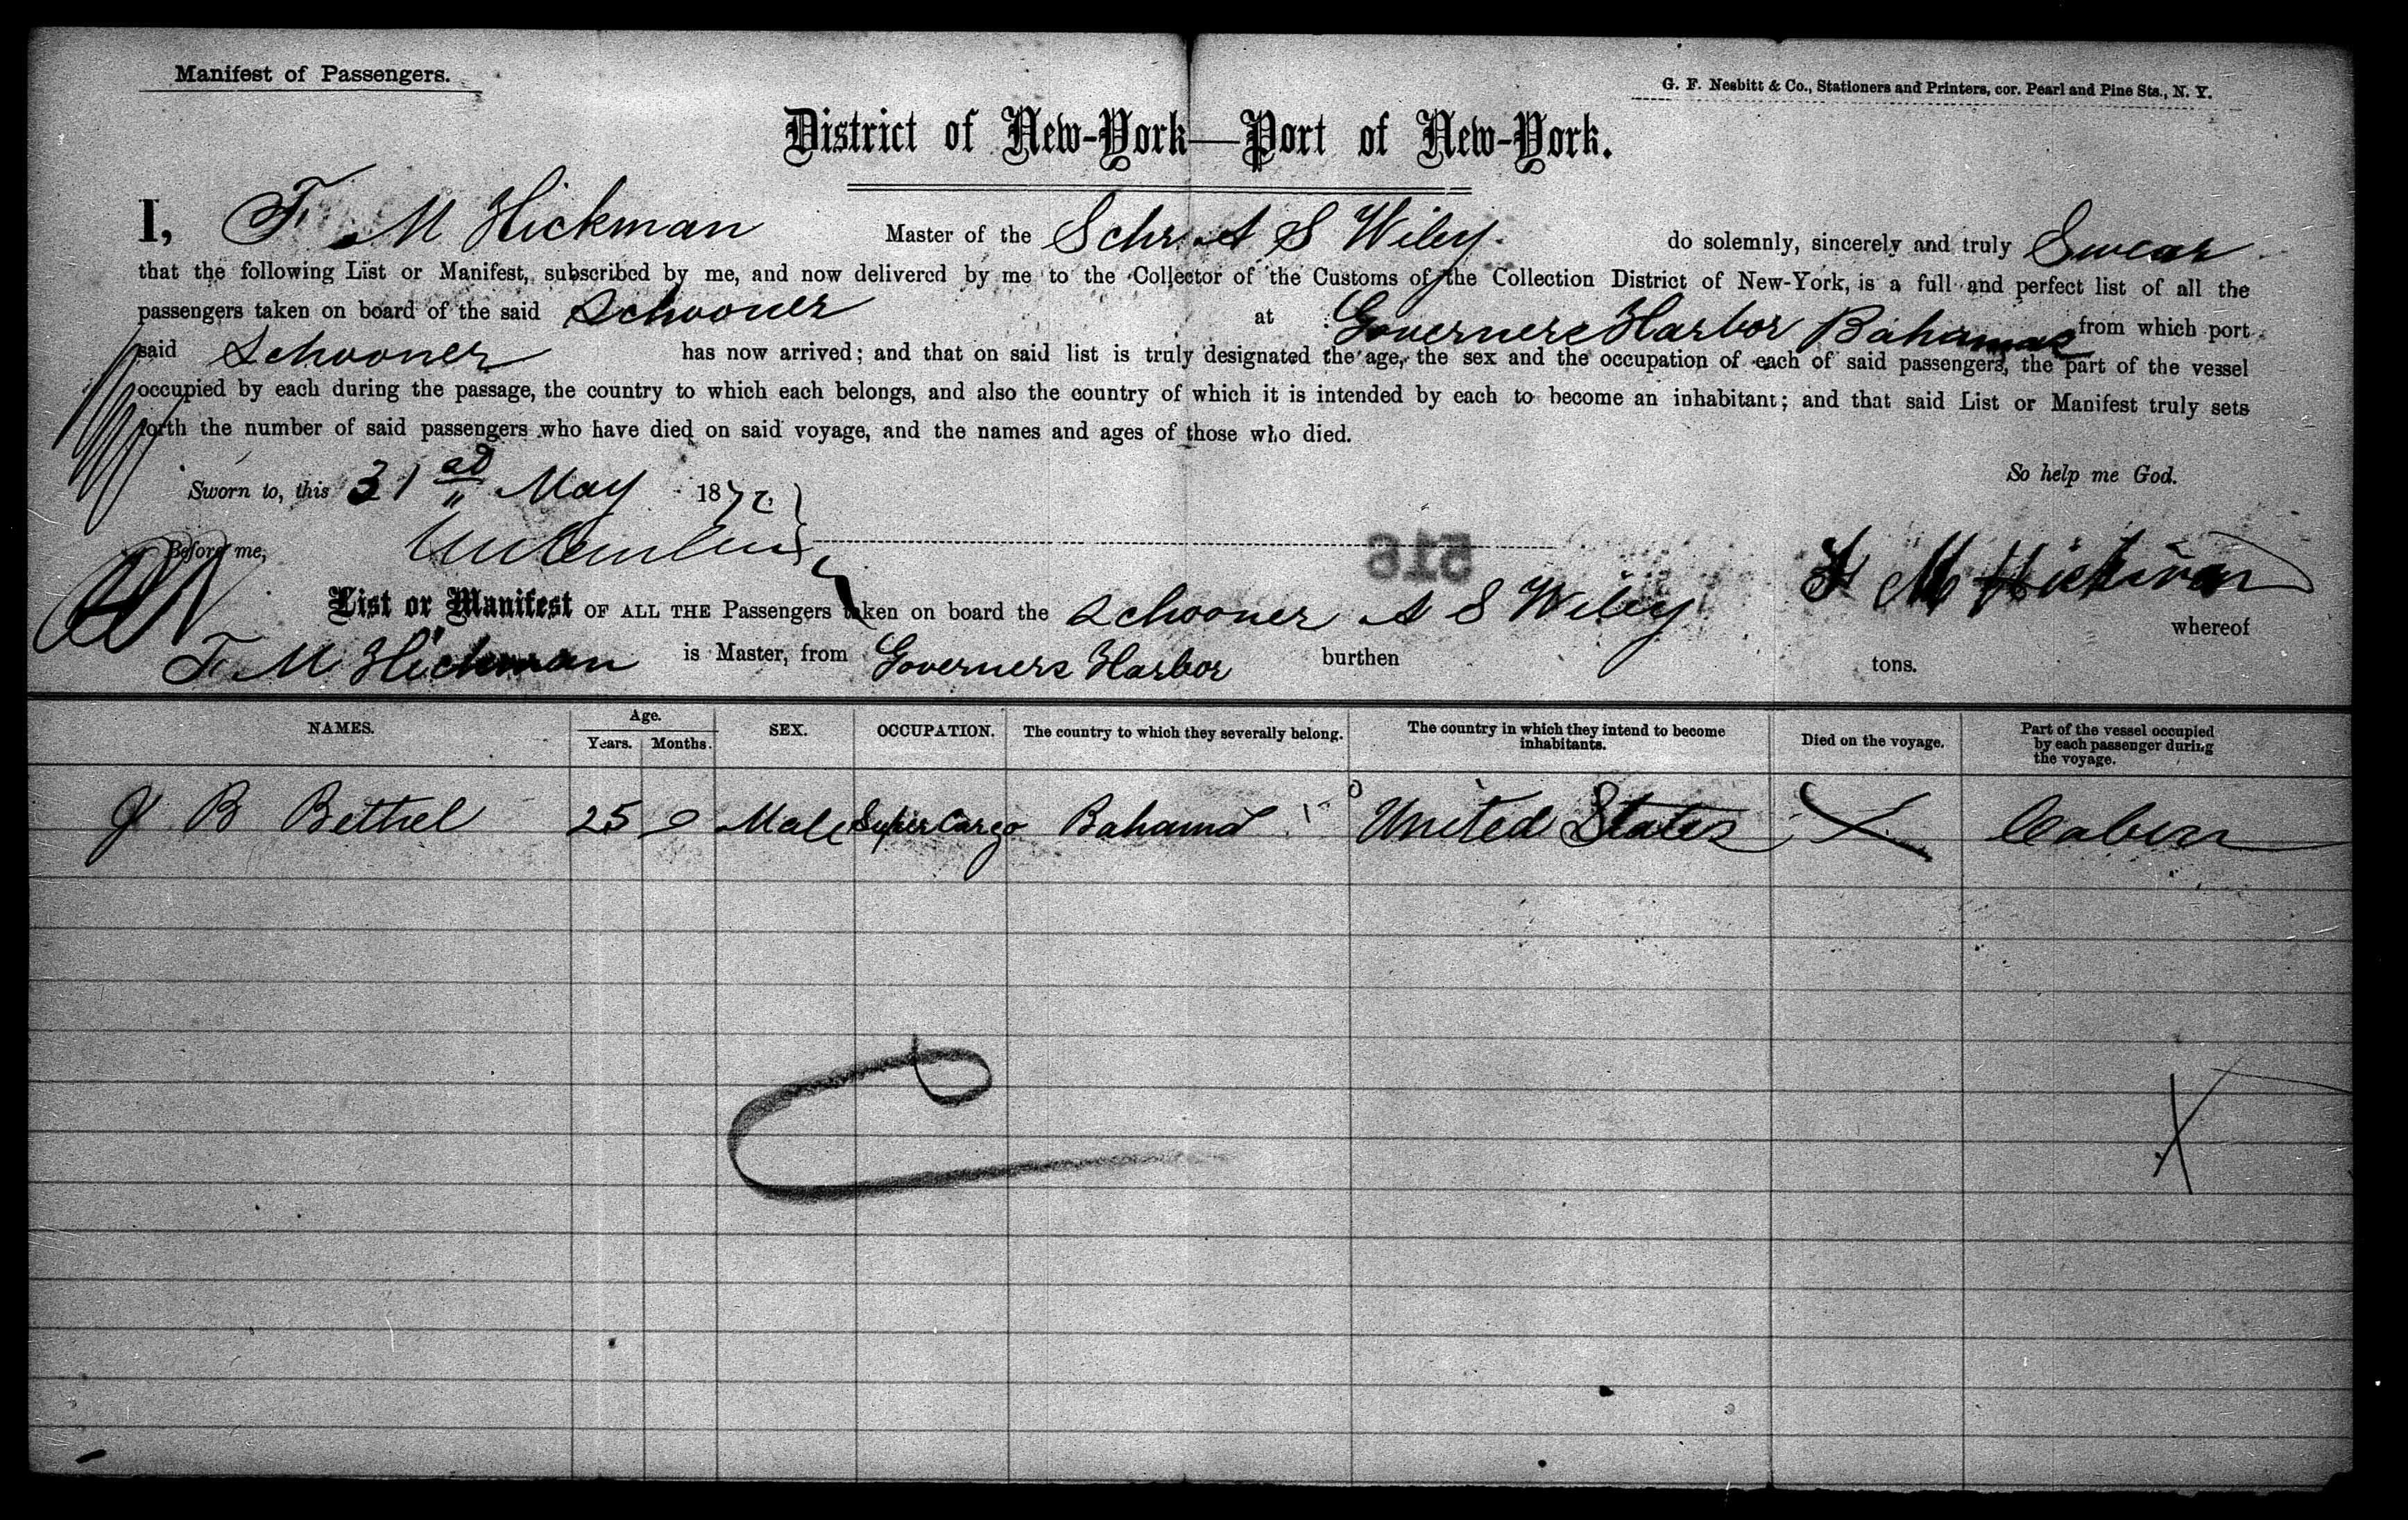 Manifest of Passengers.
G. F. Nesbitt & Co., Stationers and Printers, cor. Pearl and Pine Sts., N. Y.
District of New-York—Port of New-York.
I, F. M Hickman Master of the Schr A S Wiley. do solemnly, sincerely and truly Swear
that the following List or Manifest, subscribed by me, and now delivered by me to the Collector of the Customs of the Collection District of New-York, is a full and perfect list of all the
passengers taken on board of the said Schooner at Governers Harbor Bahamas from which port
said Schooner has now arrived; and that on said list is truly designated the age, the sex and the occupation of each of said passengers, the part of the vessel
occupied by each during the passage, the country to which each belongs, and also the country of which it is intended by each to become an inhabitant; and that said List or Manifest truly sets
forth the number of said passengers who have died on said voyage, and the names and ages of those who died.
So help me God.
Sworn to, this 31 May 187
Before me,
516
F M Hickman
List or Manifest OF ALL THE Passengers taken on board the Schooner A S Wiley whereof
F. M Hickman is Master, from Governers Harbor burthen tons.
NAMES. Age. Years. Months. SEX. OCCUPATION. The country to which they severally belong. The country in which they intend to become inhabitants. Died on the voyage. Part of the vessel occupied by each passenger during the voyage.
J B Bethel 25 0 Male Super Cargo Bahama United States X Cabin